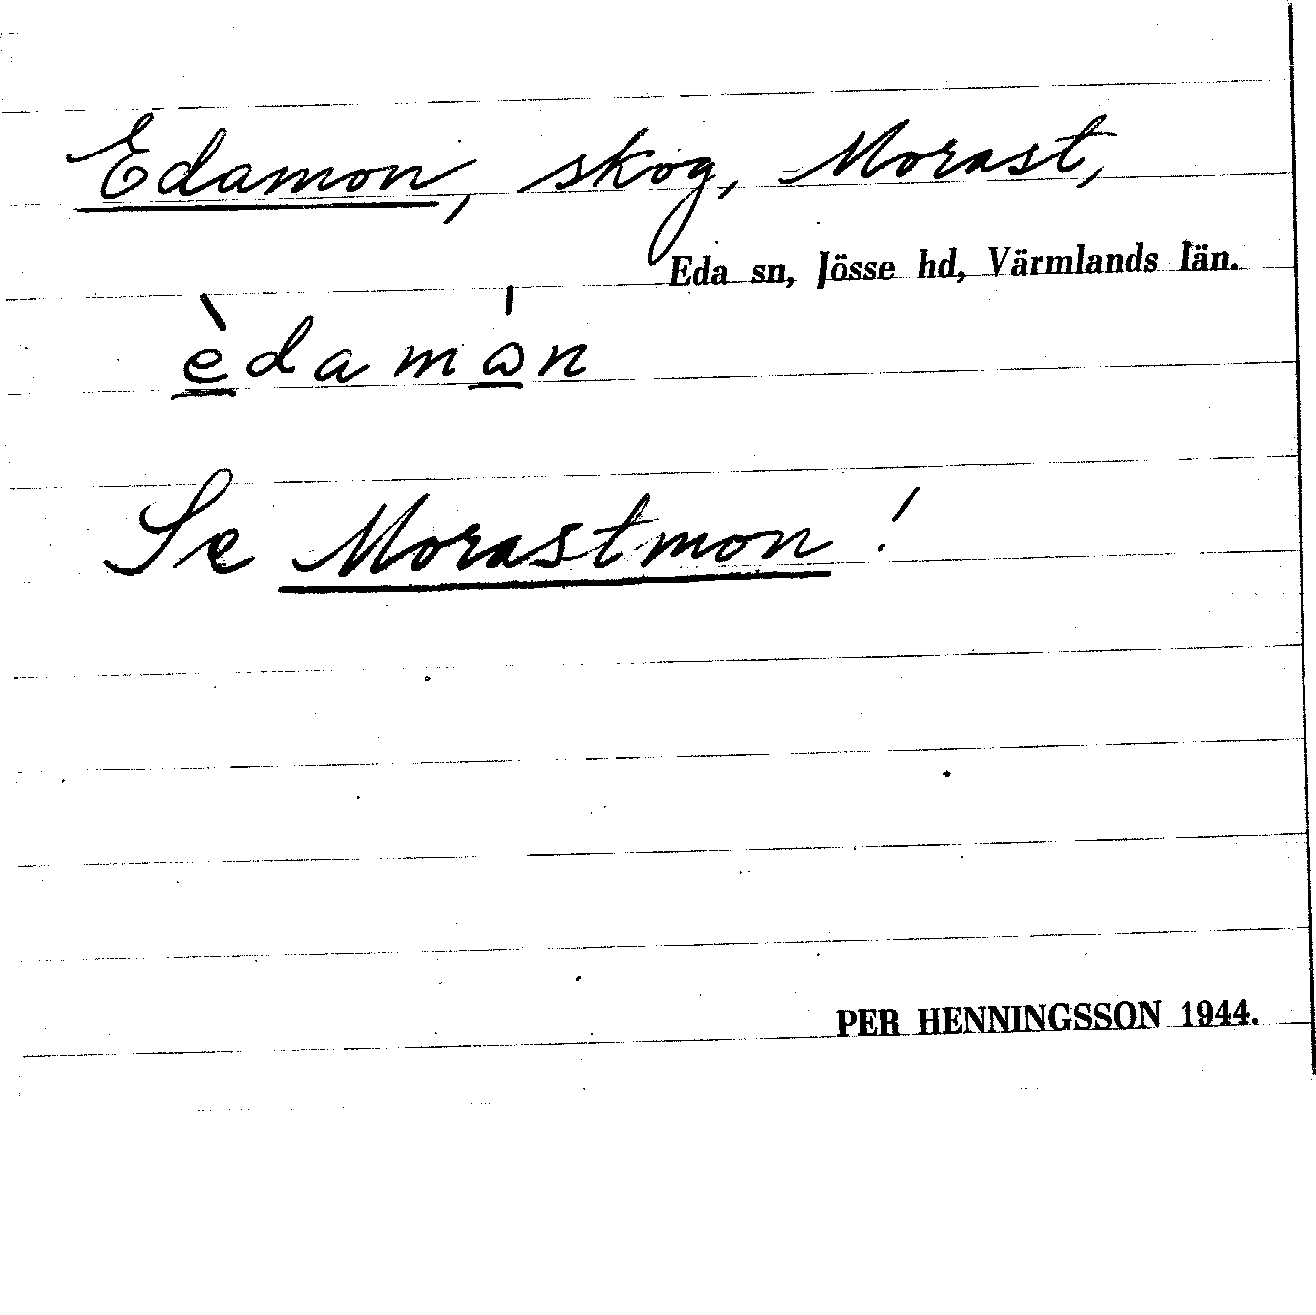 Edamon, skog, Morast,
Eda sn, Jösse hd, Värmlands län.
èdamώn
Se Morastmon!
PER HENNINGSSON 1944.